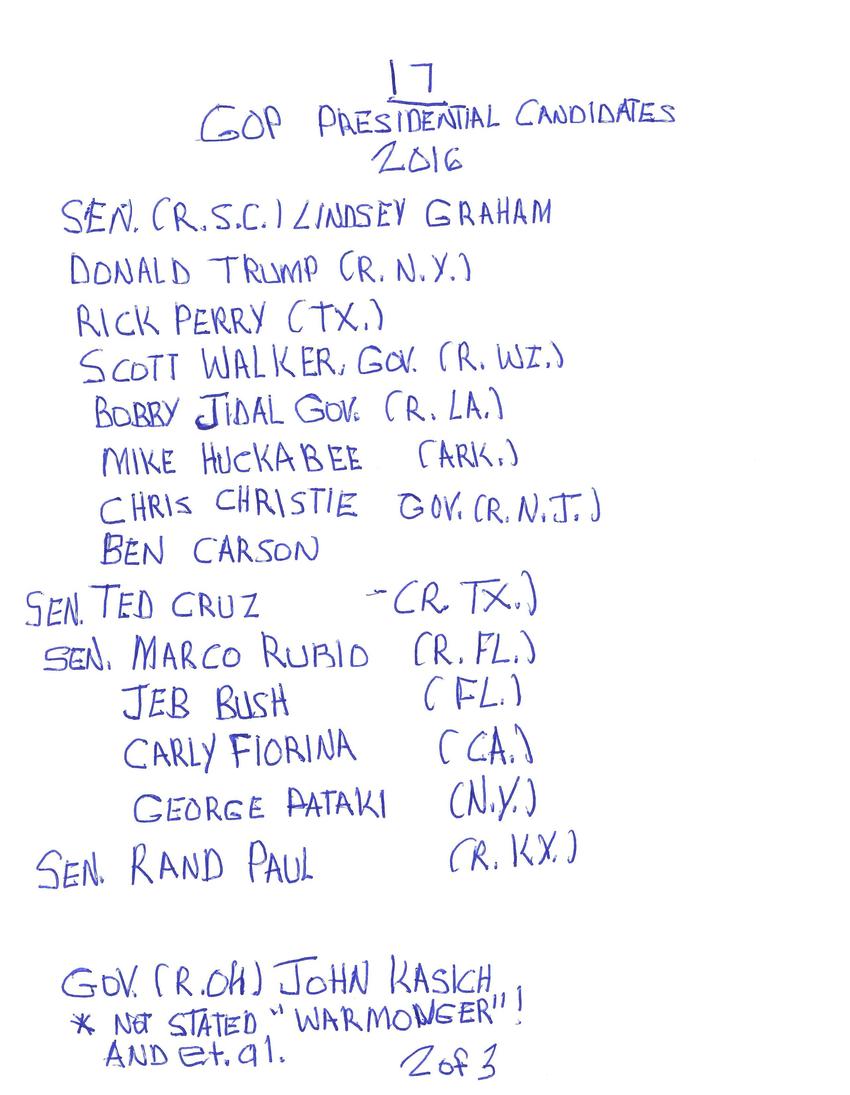 17
GOP PRESIDENTIAL CANDIDATES
2016
SEN. (R.S.C.) LINDSEY GRAHAM
DONALD TRUMP (R. N.Y.)
RICK PERRY (TX.)
SCOTT WALKER, GOV. (R. WI.)
BOBBY JIDAL GOV. (R. LA.)
MIKE HUCKABEE (ARK.)
CHRIS CHRISTIE GOV. (R. N.J.)
BEN CARSON
SEN. TED CRUZ -(R. TX.)
SEN. MARCO RUBIO (R. FL.)
JEB BUSH (FL.)
CARLY FIORINA (CA.)
GEORGE PATAKI (N.Y.)
SEN. RAND PAUL (R. KX.)
GOV. (R.OH) JOHN KASICH
* NOT STATED "WARMONGER"!
AND et. al. 2 of 3